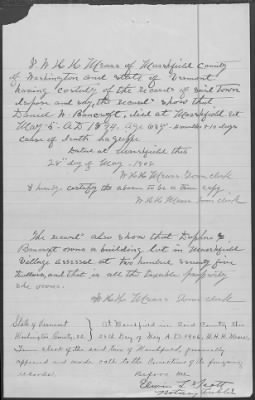 I W H H Mears of Marshfield County
of Washington and State of Vermont
having custody of the records of said Town
depose and say, the records show that
Daniel W. Bancroft, died at Marshfield Vt
May 5 - A.D. 1894, age 63 months + 10 days
cause of death la grippe
Dated at Marshfield this
28" day of May - 1908
W H H Mears Town clerk
I hereby certify the above to be a true copy
W. H. H. Mears Town clerk
The records also show that
Bancroft owns a building lot in Marshfield
Village assessed at two hundred seventy five
Dollars, and that is all the taxable property
she owns.
W H H Mears Town clerk
State of Vermont
Washington County, SS.
At Marshfield in said County this
28th day of May A.D. 1908, W. H. H. Mears,
Town clerk of the said town of Marshfield, personally
appeared and made oath to the correctness of the foregoing
records.
Before me
Scott
Notary Public